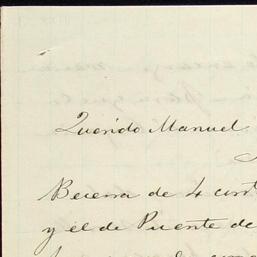 Querido Manuel
Becerra de 4 cort
y el de Puente de